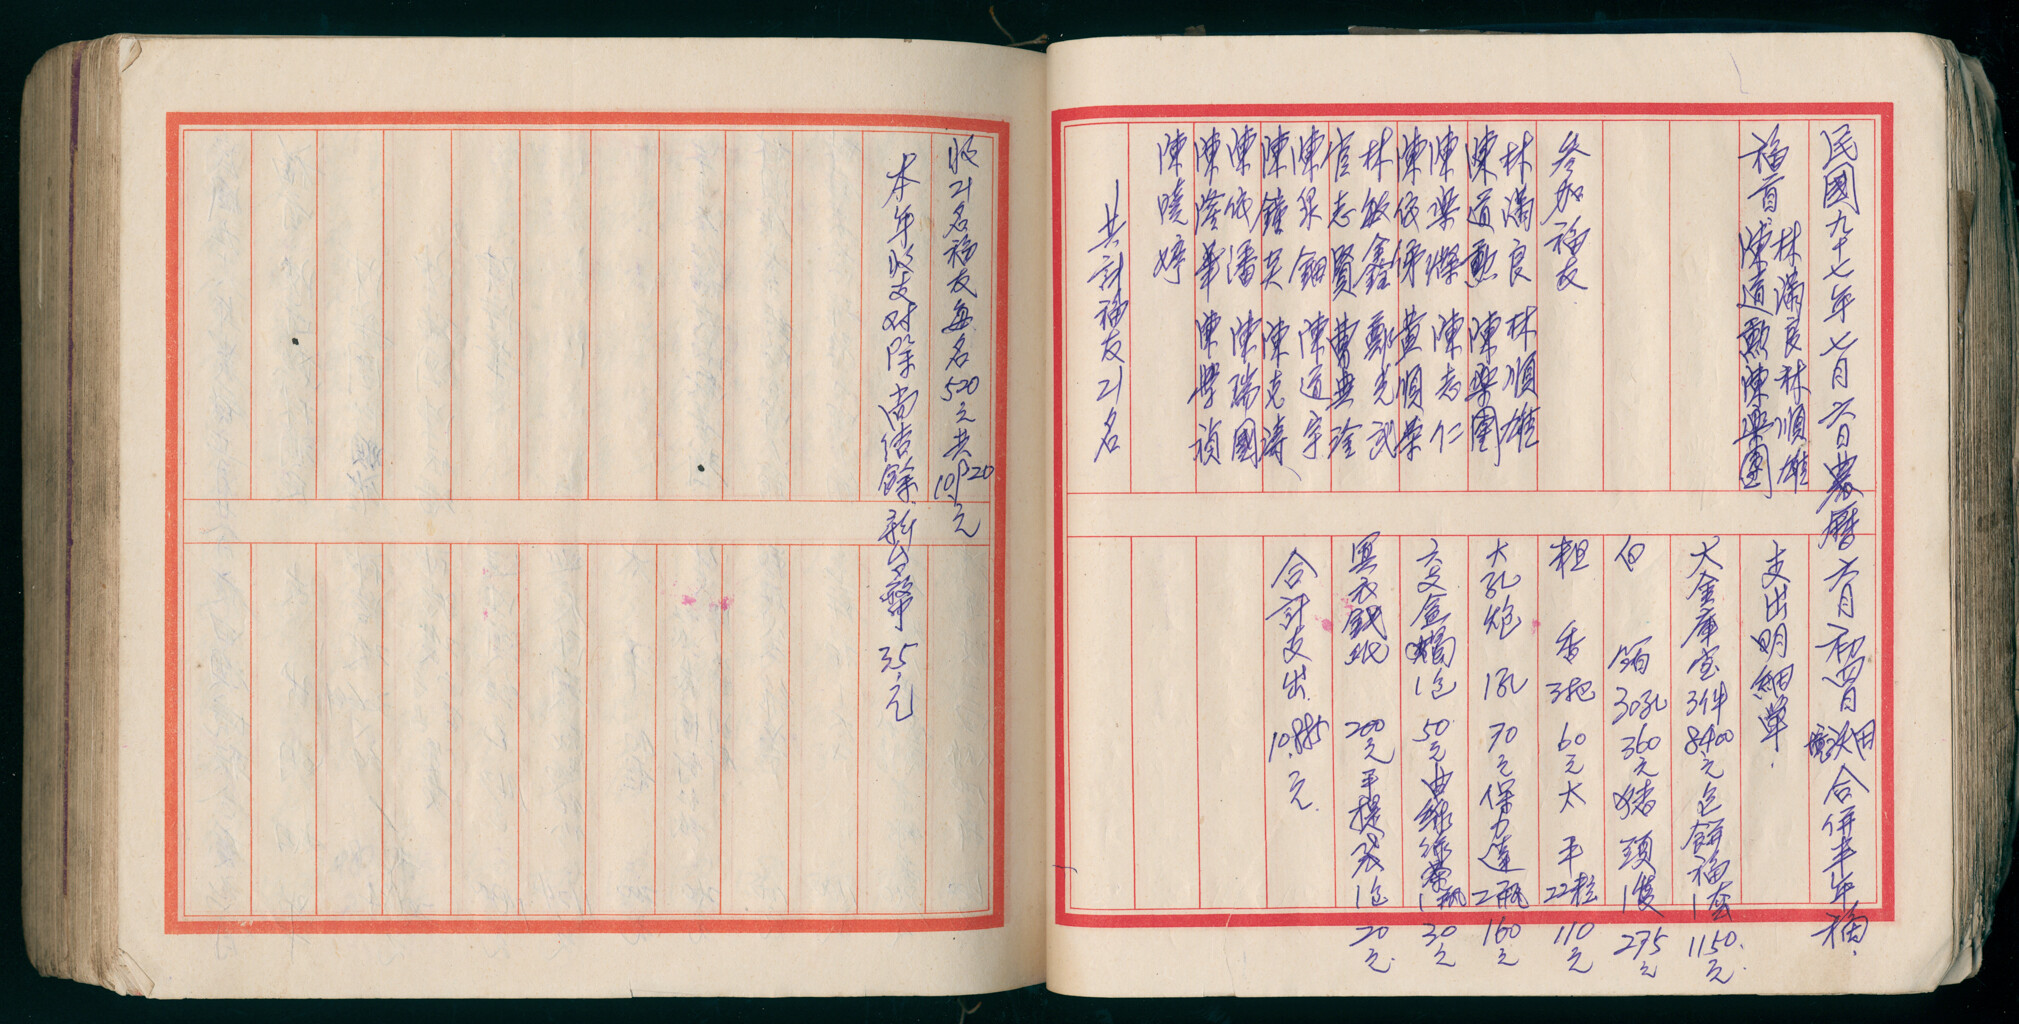 民國九十七年七月六日農曆六月初四日 合併半年福
福首 林滿良 林順雄
陳道勲 陳樂團
參加福友
林滿良 林順雄
陳道勲 陳樂團
陳樂燦 陳志仁
陳依俤 黃順榮
林敏鑫 鄭光武
官志賢 曹典淦
陳泉鈿 陳道宇
陳鐘英 陳克濤
陳依潘 陳瑞國
陳隆華 陳學禎
陳曉婷
共計福友21名
支出明細單
大金庫宝3件8400元包餅福衣1套1150元
白箔30孔360元猪頭1隻275元
粗香3把60元太平22粒110元
大孔炮1孔70元保力達2瓶160元
六文盒蠋1包50元 1瓶30元
冥衣錢紙200元手提袋1包20元
合計支出10.885元
收21名福友每名520元共10920元
本年收支对除尚结餘新台幣35元